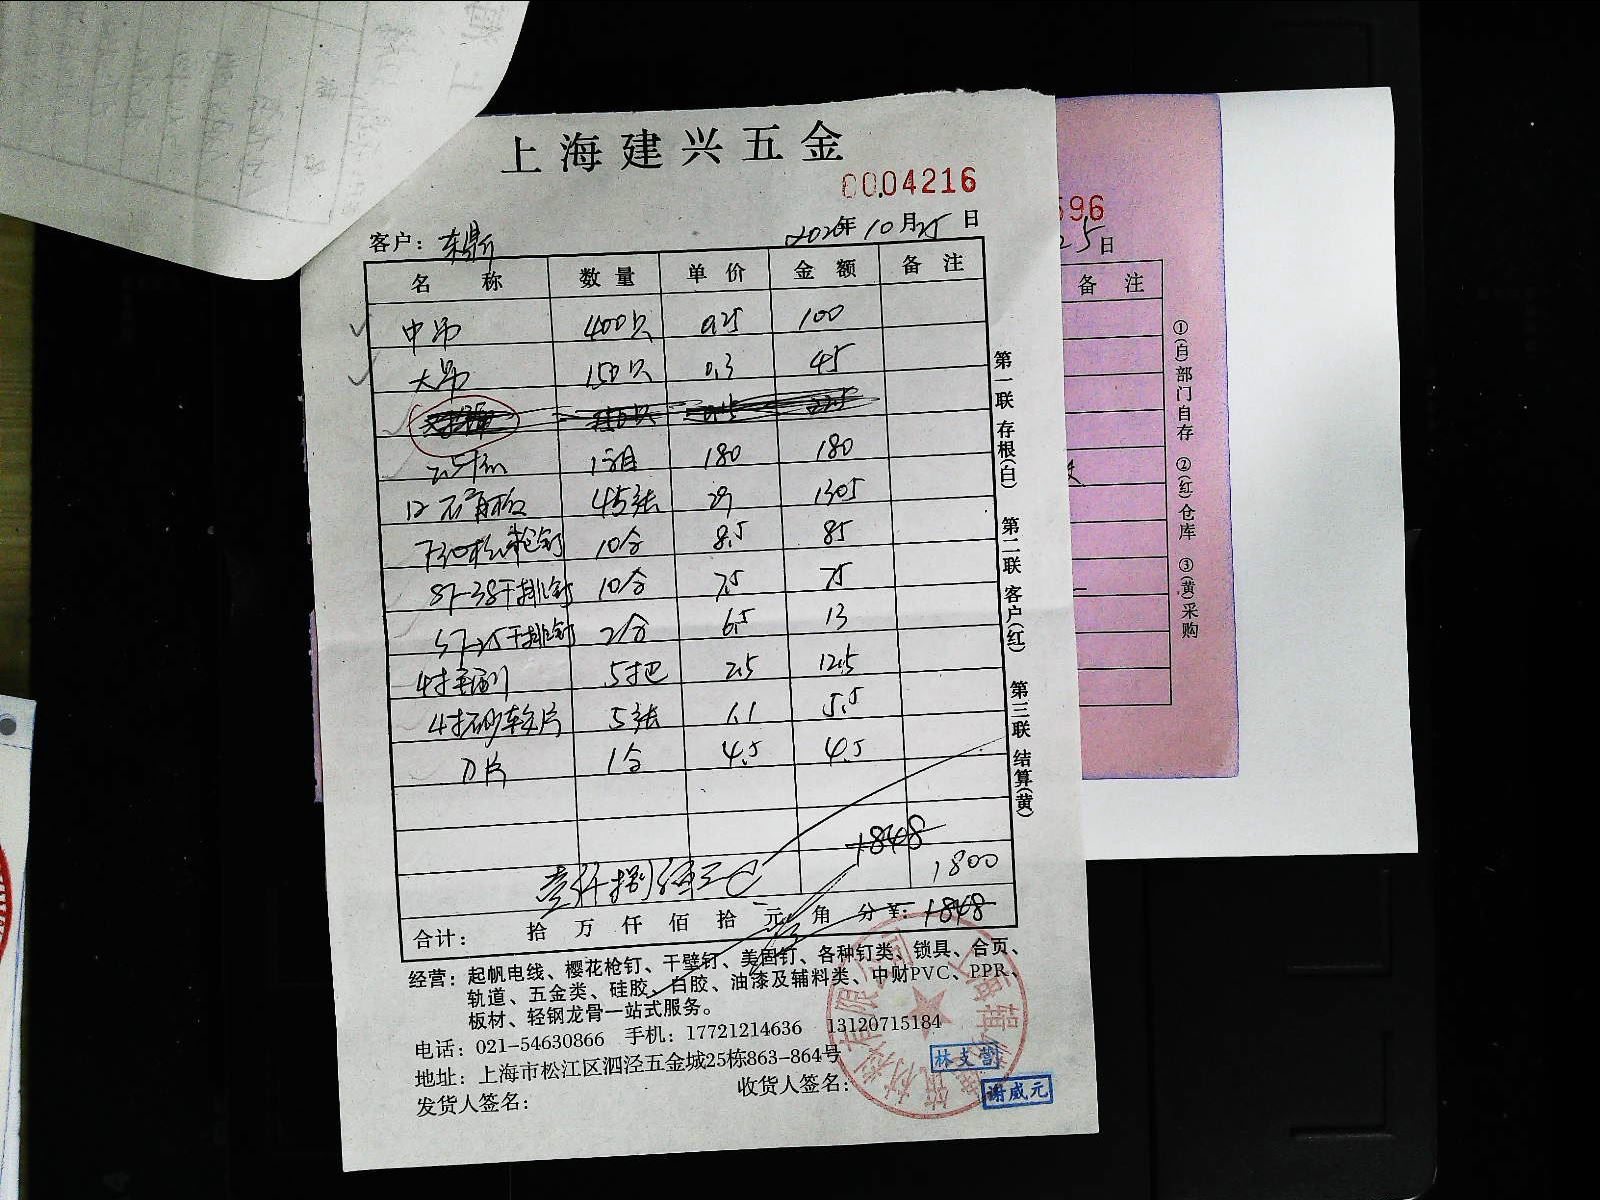 上海建兴五金
0004216
客户: 东鼎
2020年10月25日
名 称 数量 单价 金额 备注
中吊 400只 0.25 100
大吊 150只 0.3 45
1箱 180 180
12石膏板 45张 29 1305
F30枪钉 10合 8.5 85
8F-38干排钉 10合 7.5 75
5F-25干排钉 2合 6.5 13
4寸 5把 2.5 12.5
4寸砂轮片 5张 1.1 5.5
刀片 1合 4.5 4.5
1848
壹仟捌佰元 1800
合计: 拾 万 仟 佰 拾 元 角 分 ¥: 1848
经营: 起帆电线、樱花枪钉、干壁钉、美固钉、各种钉类、锁具、合页、
轨道、五金类、硅胶、白胶、油漆及辅料类、中财PVC、PPR、
板材、轻钢龙骨一站式服务。
电话: 021-54630866 手机: 17721214636 13120715184
地址: 上海市松江区泗泾五金城25栋863-864号
发货人签名: 收货人签名:
林支营
谢威元
第一联 存根(白) 第二联 客户(红) 第三联 结算(黄)
596
25日
备注
①(白)部门自存 ②(红)仓库 ③(黄)采购